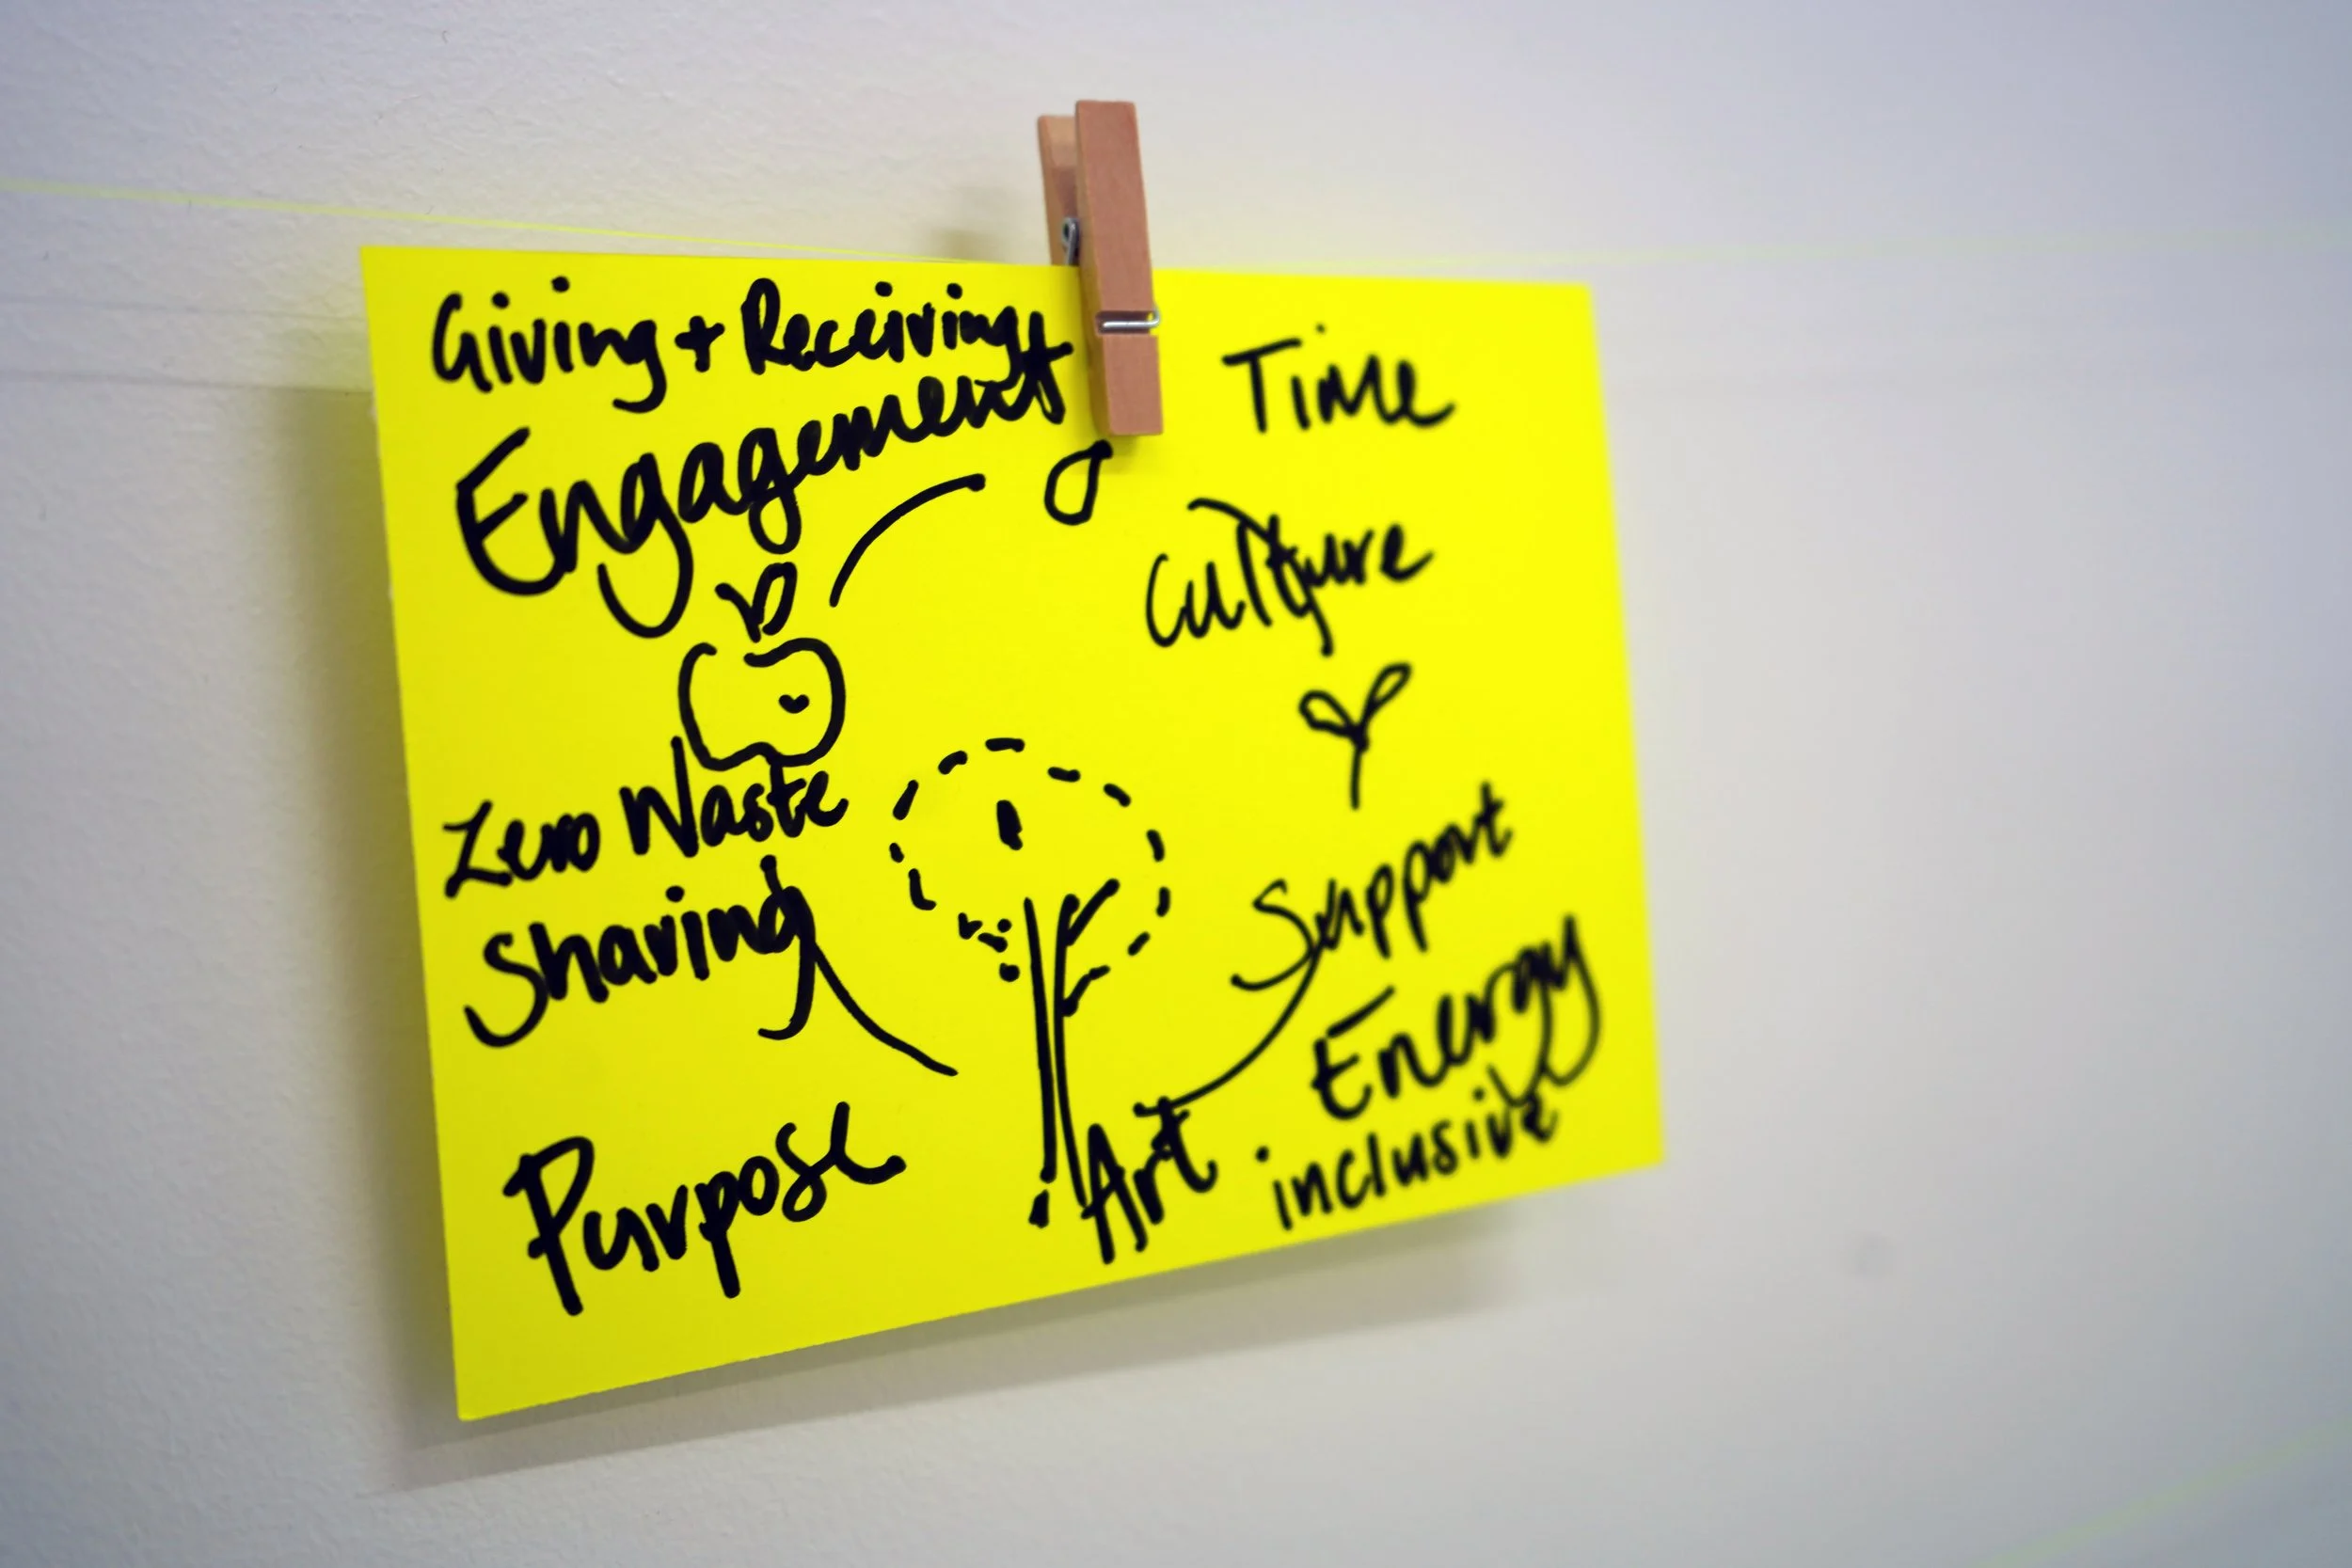 Giving + Receiving
Engagement
Zero Waste
Sharing
Purpose
Time
Culture
Support
Energy
Art
inclusive